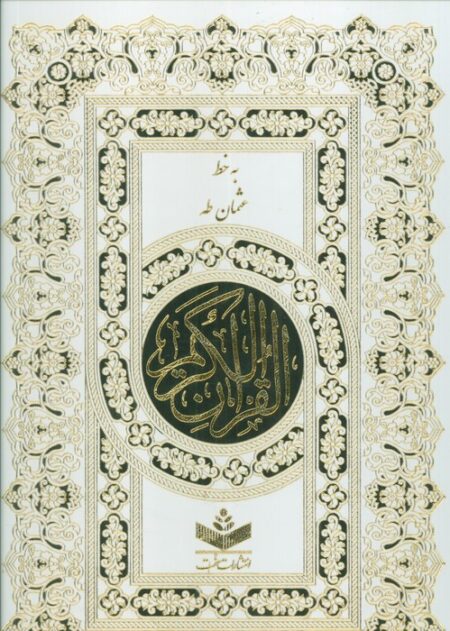 به خط
عثمان طه
القرآن الكريم
انتشارات